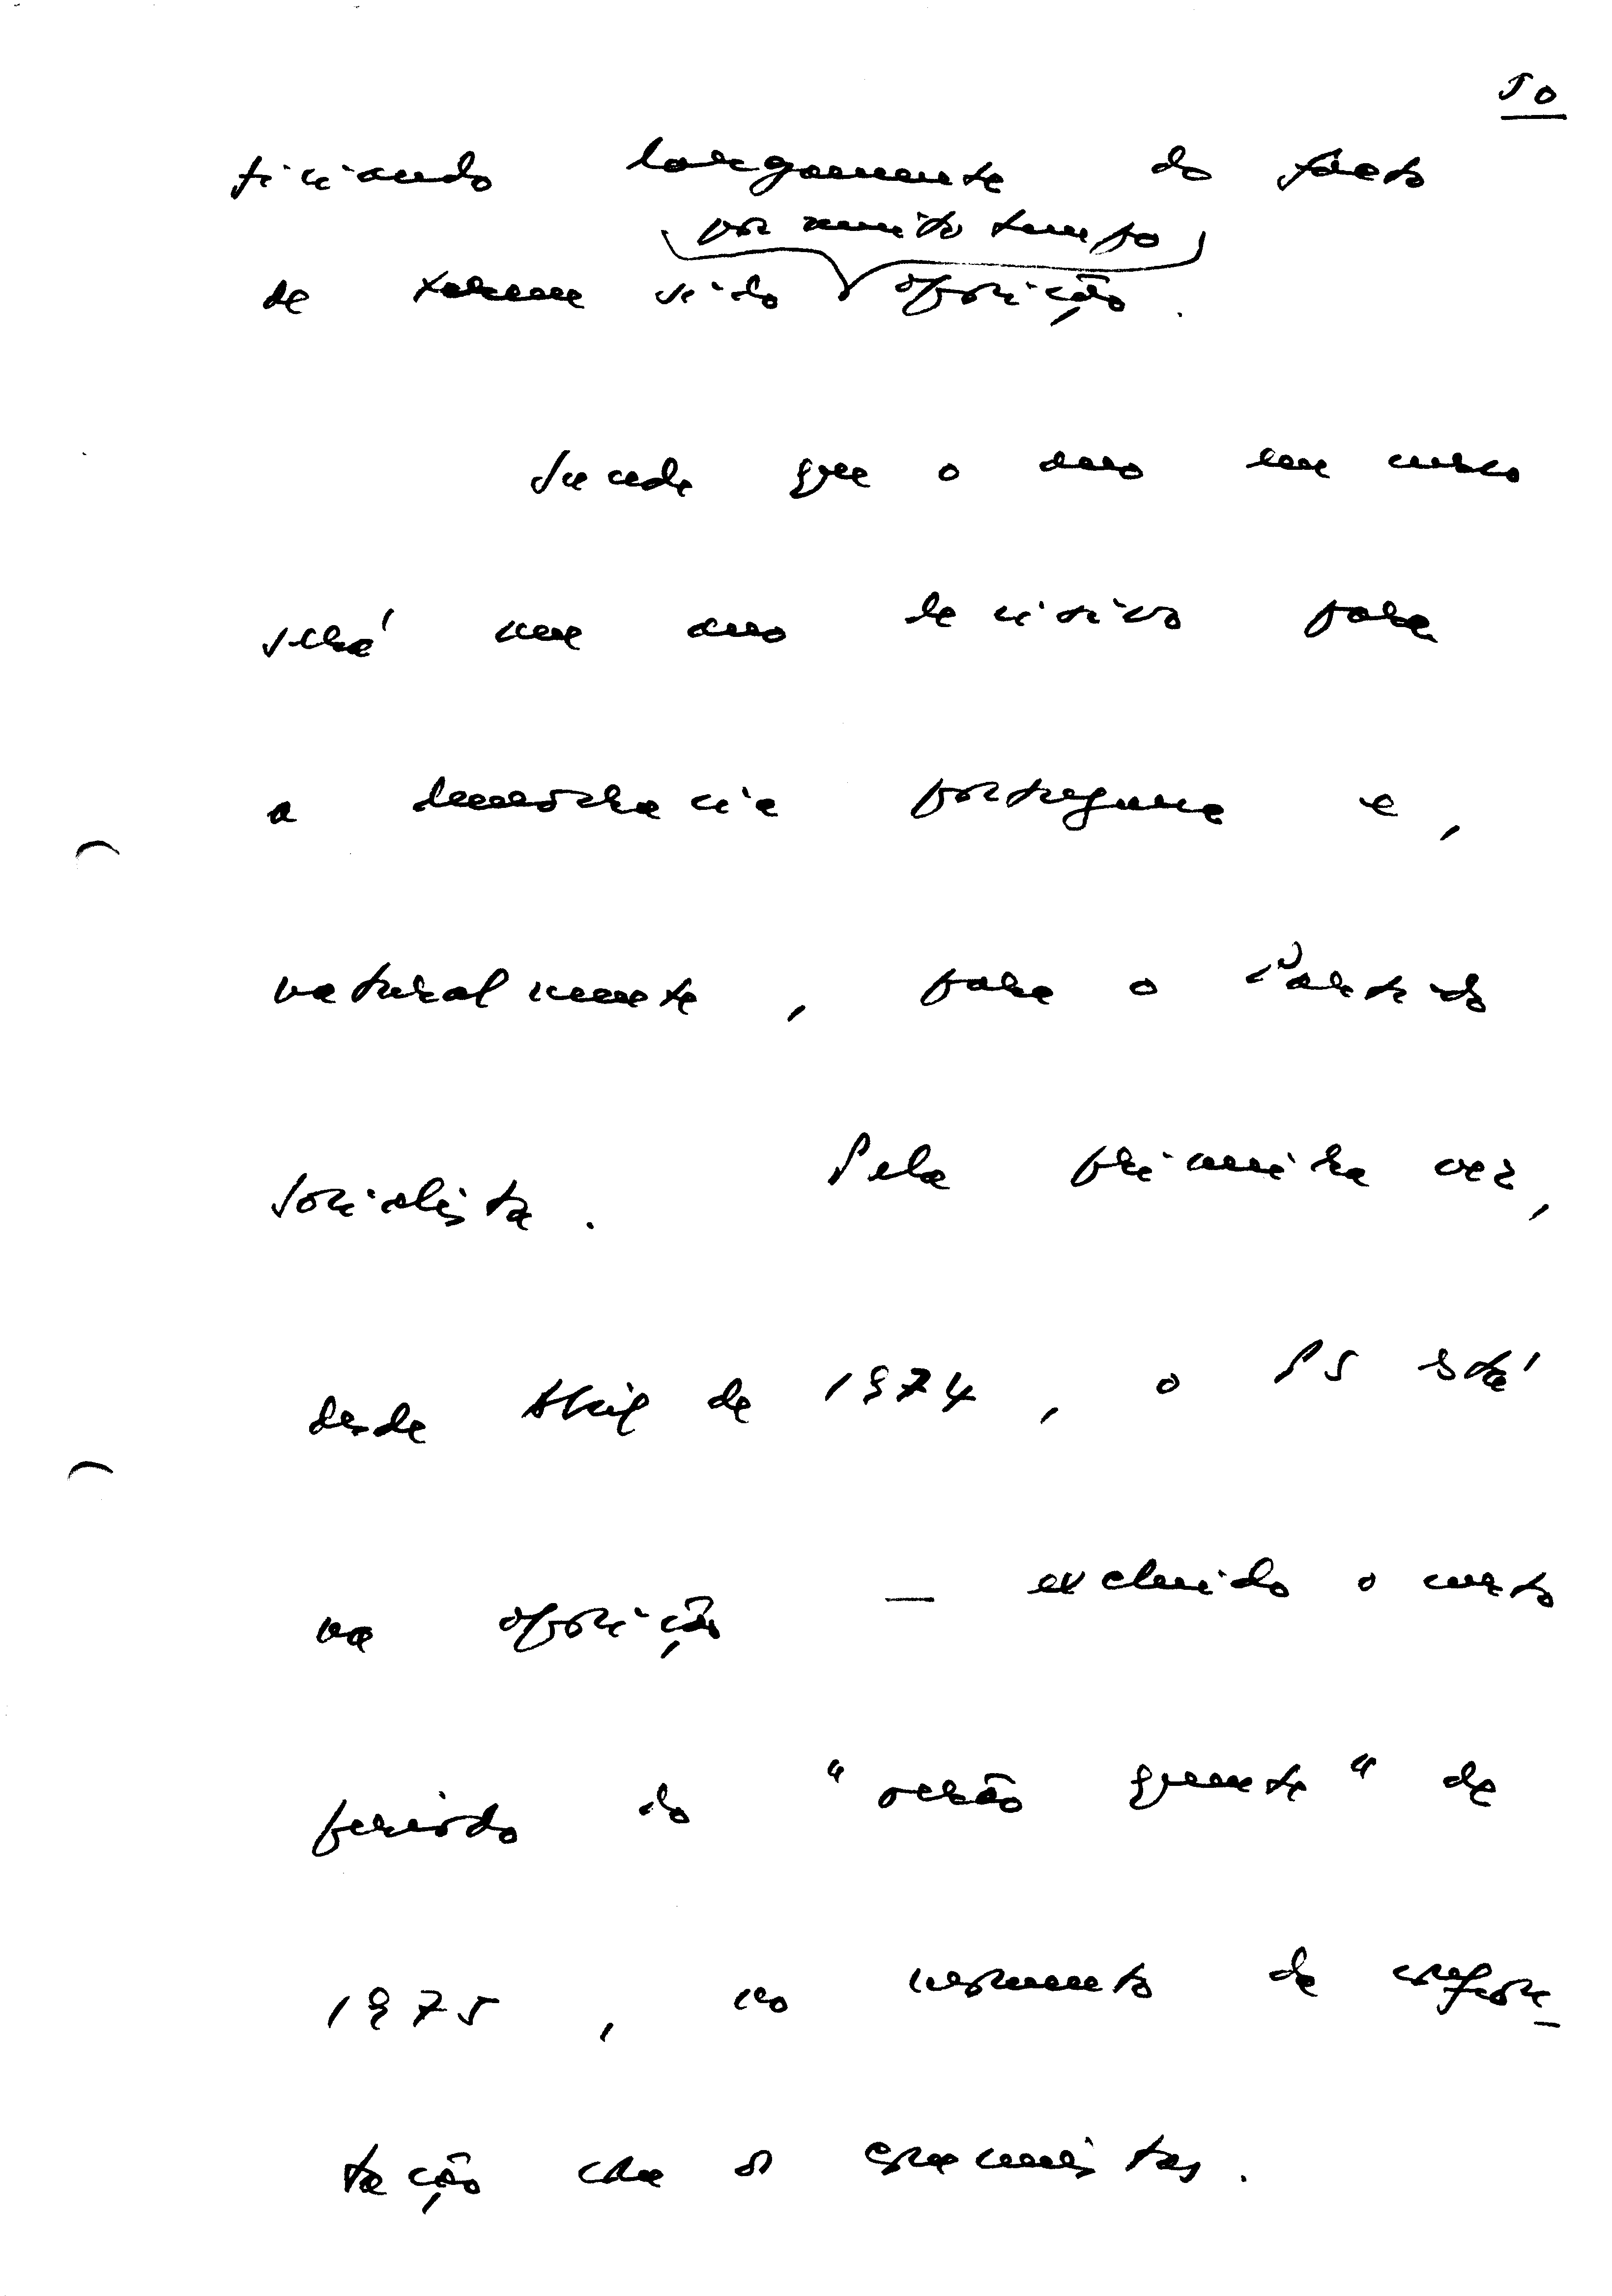 50
ficiando largamente do facto
por muito tempo
de terem sido oposição.
Sucede que o ano em curso
será um ano decisivo para
a democracia portuguesa e,
naturalmente, para o Partido
Socialista. Pela primeira vez,
desde Abril de 1974, o PS está
na oposição — excluido o curto
período do "verão quente" de
1975, no momento da confron-
tação com os comunistas.